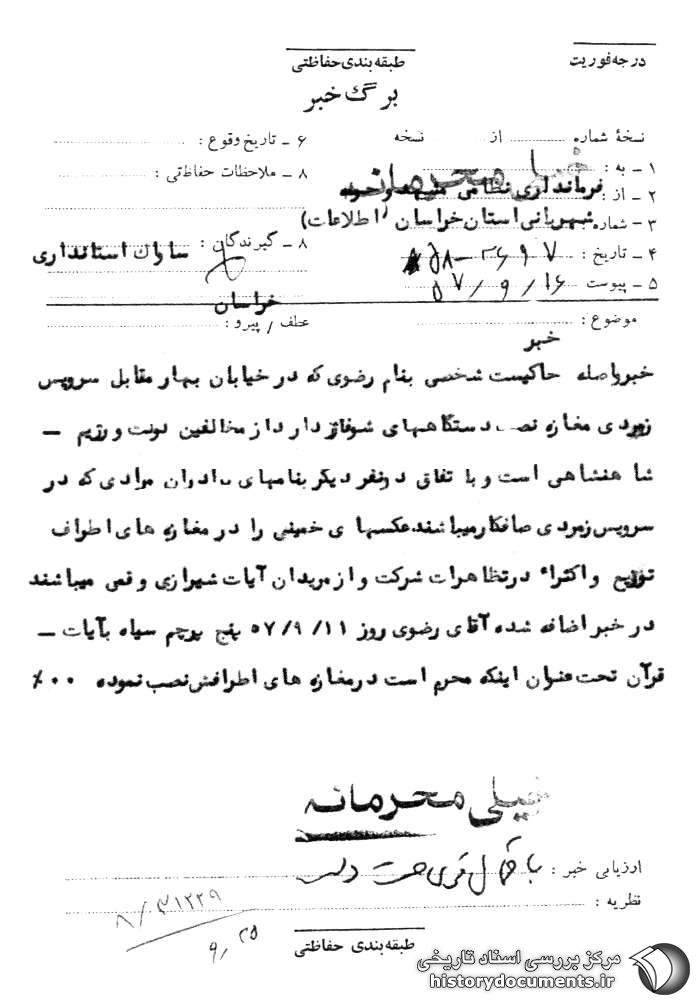 درجه فوریت
طبقه بندی حفاظتی
برگ خبر
نسخهٔ شماره از نسخه
۶ ـ تاریخ وقوع :
خیلی محرمانه
۱ ـ به : فرمانداری نظامی مشهد وحومه
۸ ـ ملاحظات حفاظتی :
۲ ـ از : شهربانی استان خراسان (اطلاعات)
۳ ـ شماره
۸ ـ گیرندگان : ساواک استانداری
خراسان
۴ ـ تاریخ :
۵ ـ پیوست ۵۷/۹/۱۶
موضوع :
عطف / پیرو :
خبر
خبرواصله حاکیست شخصی بنام رضوی که در خیابان بهار مقابل سرویس
زمردی مغازه نصب دستگاههای شوفاژ دارد از مخالفین دولت ورژیم ـ
شاهنشاهی است و با تفاق دونفر دیگر بنامهای برادران مرادی که در
سرویس زمردی صافکار میباشند عکسهای خمینی را در مغازه های اطراف
توزیع و اکثراً درتظاهرات شرکت و از مریدان آیات شیرازی و قمی میباشند
در خبر اضافه شده آقای رضوی روز ۵۷/۹/۱۱ پنج پرچم سیاه بآیات ـ
قرآن تحت عنوان اینکه محرم است درمغازه های اطرافش نصب نموده ۰۰٪
خیلی محرمانه
ارزیابی خبر : با احتمال قوی صحت دارد
نظریه :
۸/۰۳۱۲۲۹
۹/۲۵
طبقه بندی حفاظتی
مرکز بررسی اسناد تاریخی
historydocuments.ir